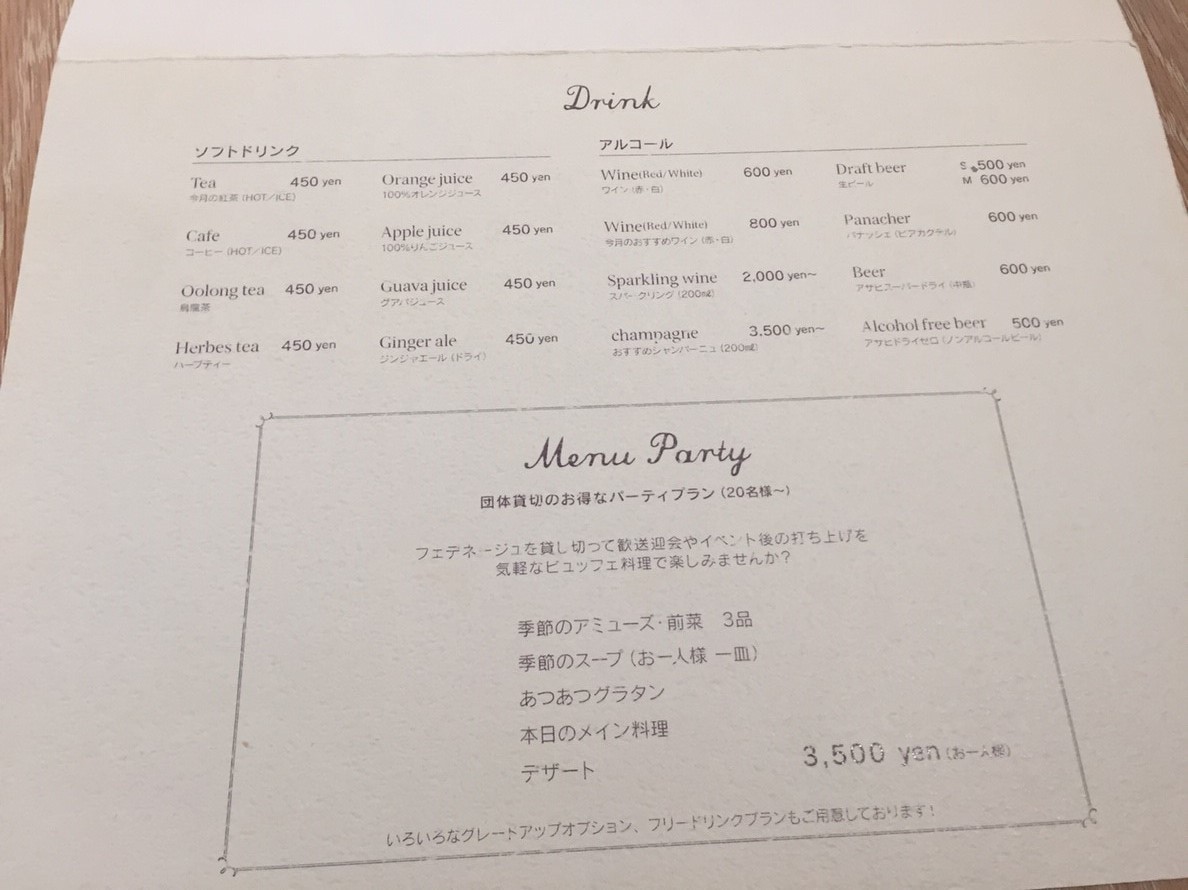 Drink
ソフトドリンク
Tea 450 yen
今月の紅茶 (HOT/ICE)
Cafe 450 yen
コーヒー (HOT/ICE)
Oolong tea 450 yen
烏龍茶
Herbes tea 450 yen
ハーブティー
Orange juice 450 yen
100%オレンジジュース
Apple juice 450 yen
100%りんごジュース
Guava juice 450 yen
グアバジュース
Ginger ale 450 yen
ジンジャエール (ドライ)
アルコール
Wine(Red/White) 600 yen
ワイン (赤・白)
Wine(Red/White) 800 yen
今月のおすすめワイン (赤・白)
Sparkling wine 2,000 yen~
スパークリング (200㎖)
champagne 3.500 yen~
おすすめシャンパーニュ (200㎖)
Draft beer S 500 yen
生ビール M 600 yen
Panacher 600 yen
パナッシェ (ビアカクテル)
Beer 600 yen
アサヒスーパードライ (中瓶)
Alcohol free beer 500 yen
アサヒドライゼロ (ノンアルコールビール)
Menu Party
団体貸切のお得なパーティプラン (20名様~)
フェデネージュを貸し切って歓送迎会やイベント後の打ち上げを
気軽なビュッフェ料理で楽しみませんか?
季節のアミューズ・前菜 3品
季節のスープ (お一人様 一皿)
あつあつグラタン
本日のメイン料理
デザート
3,500 yen (お一人様)
いろいろなグレートアップオプション、フリードリンクプランもご用意しております!